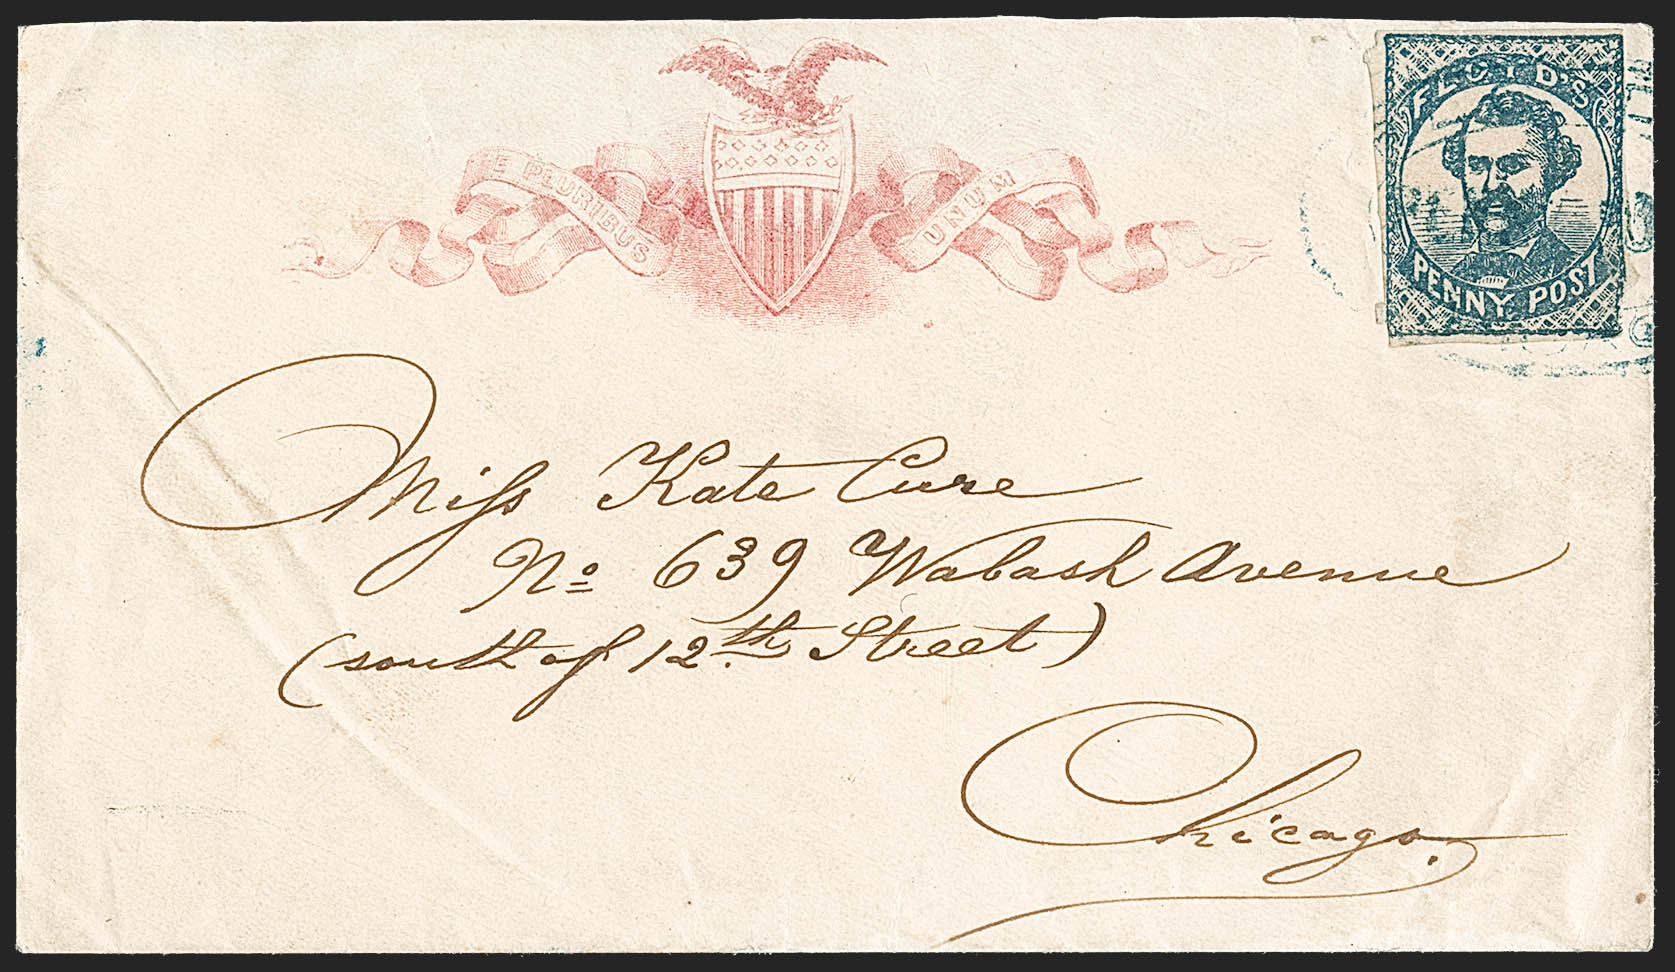 E PLURIBUS UNUM
FLOYD'S
PENNY POST
Miss Kate Cure
No 639 Wabash Avenue
(south of 12th Street)
Chicago.